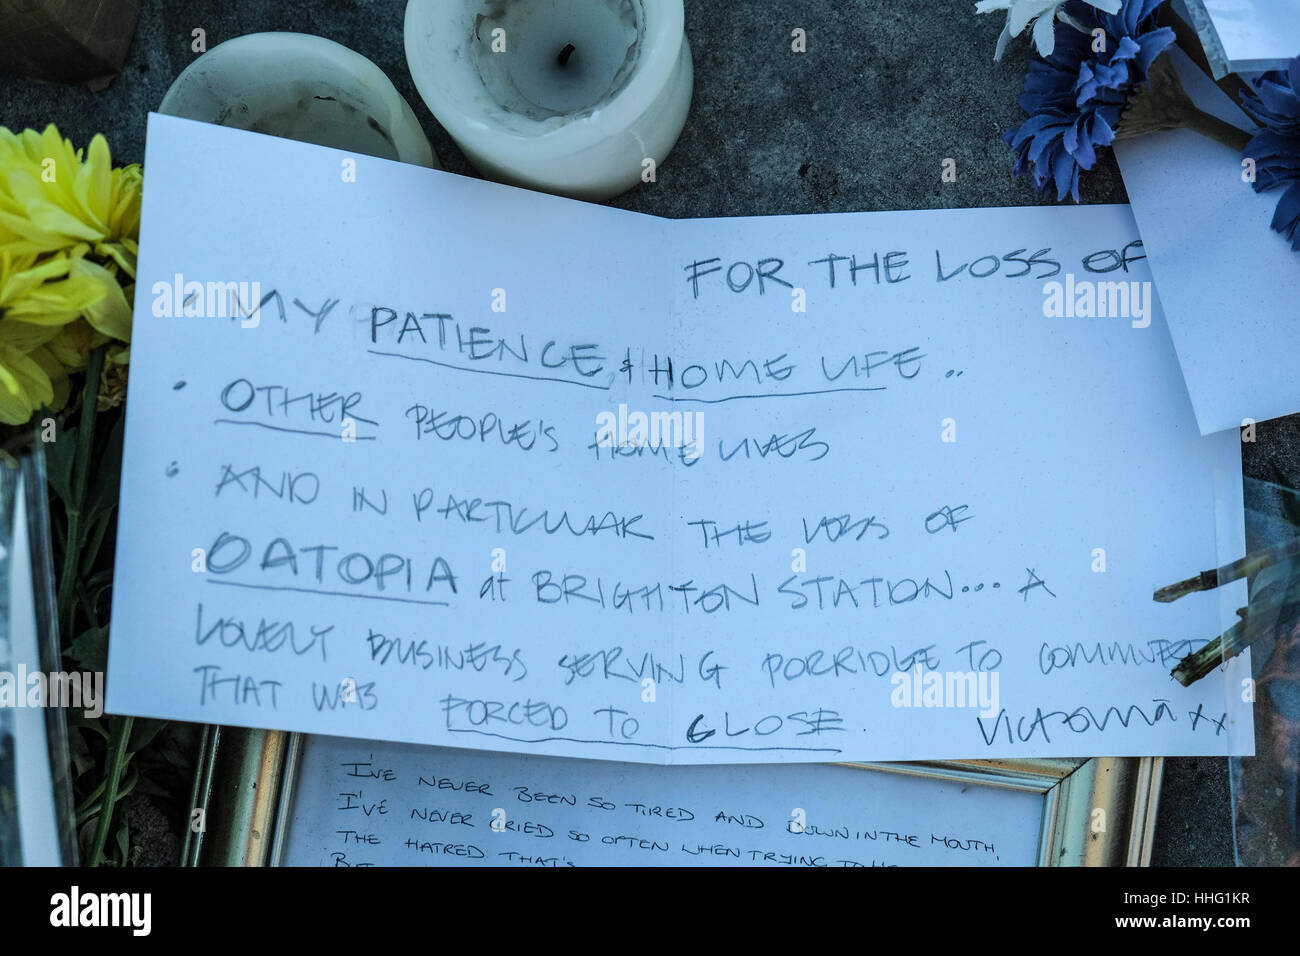 FOR THE LOSS OF
• MY PATIENCE & HOME LIFE..
• OTHER PEOPLE'S HOME LIVES
• AND IN PARTICULAR THE LOSS OF
OATOPIA at BRIGHTON STATION... A
LOVELY BUSINESS SERVING PORRIDGE TO COMMUTERS
THAT WAS FORCED TO CLOSE.
VICTORIA xx
I'VE NEVER BEEN SO TIRED AND DOWN IN THE MOUTH,
I'VE NEVER CRIED SO OFTEN WHEN TRYING TO
THE HATRED THAT'S
BUT
alamy
Image ID: HHG1KR
www.alamy.com